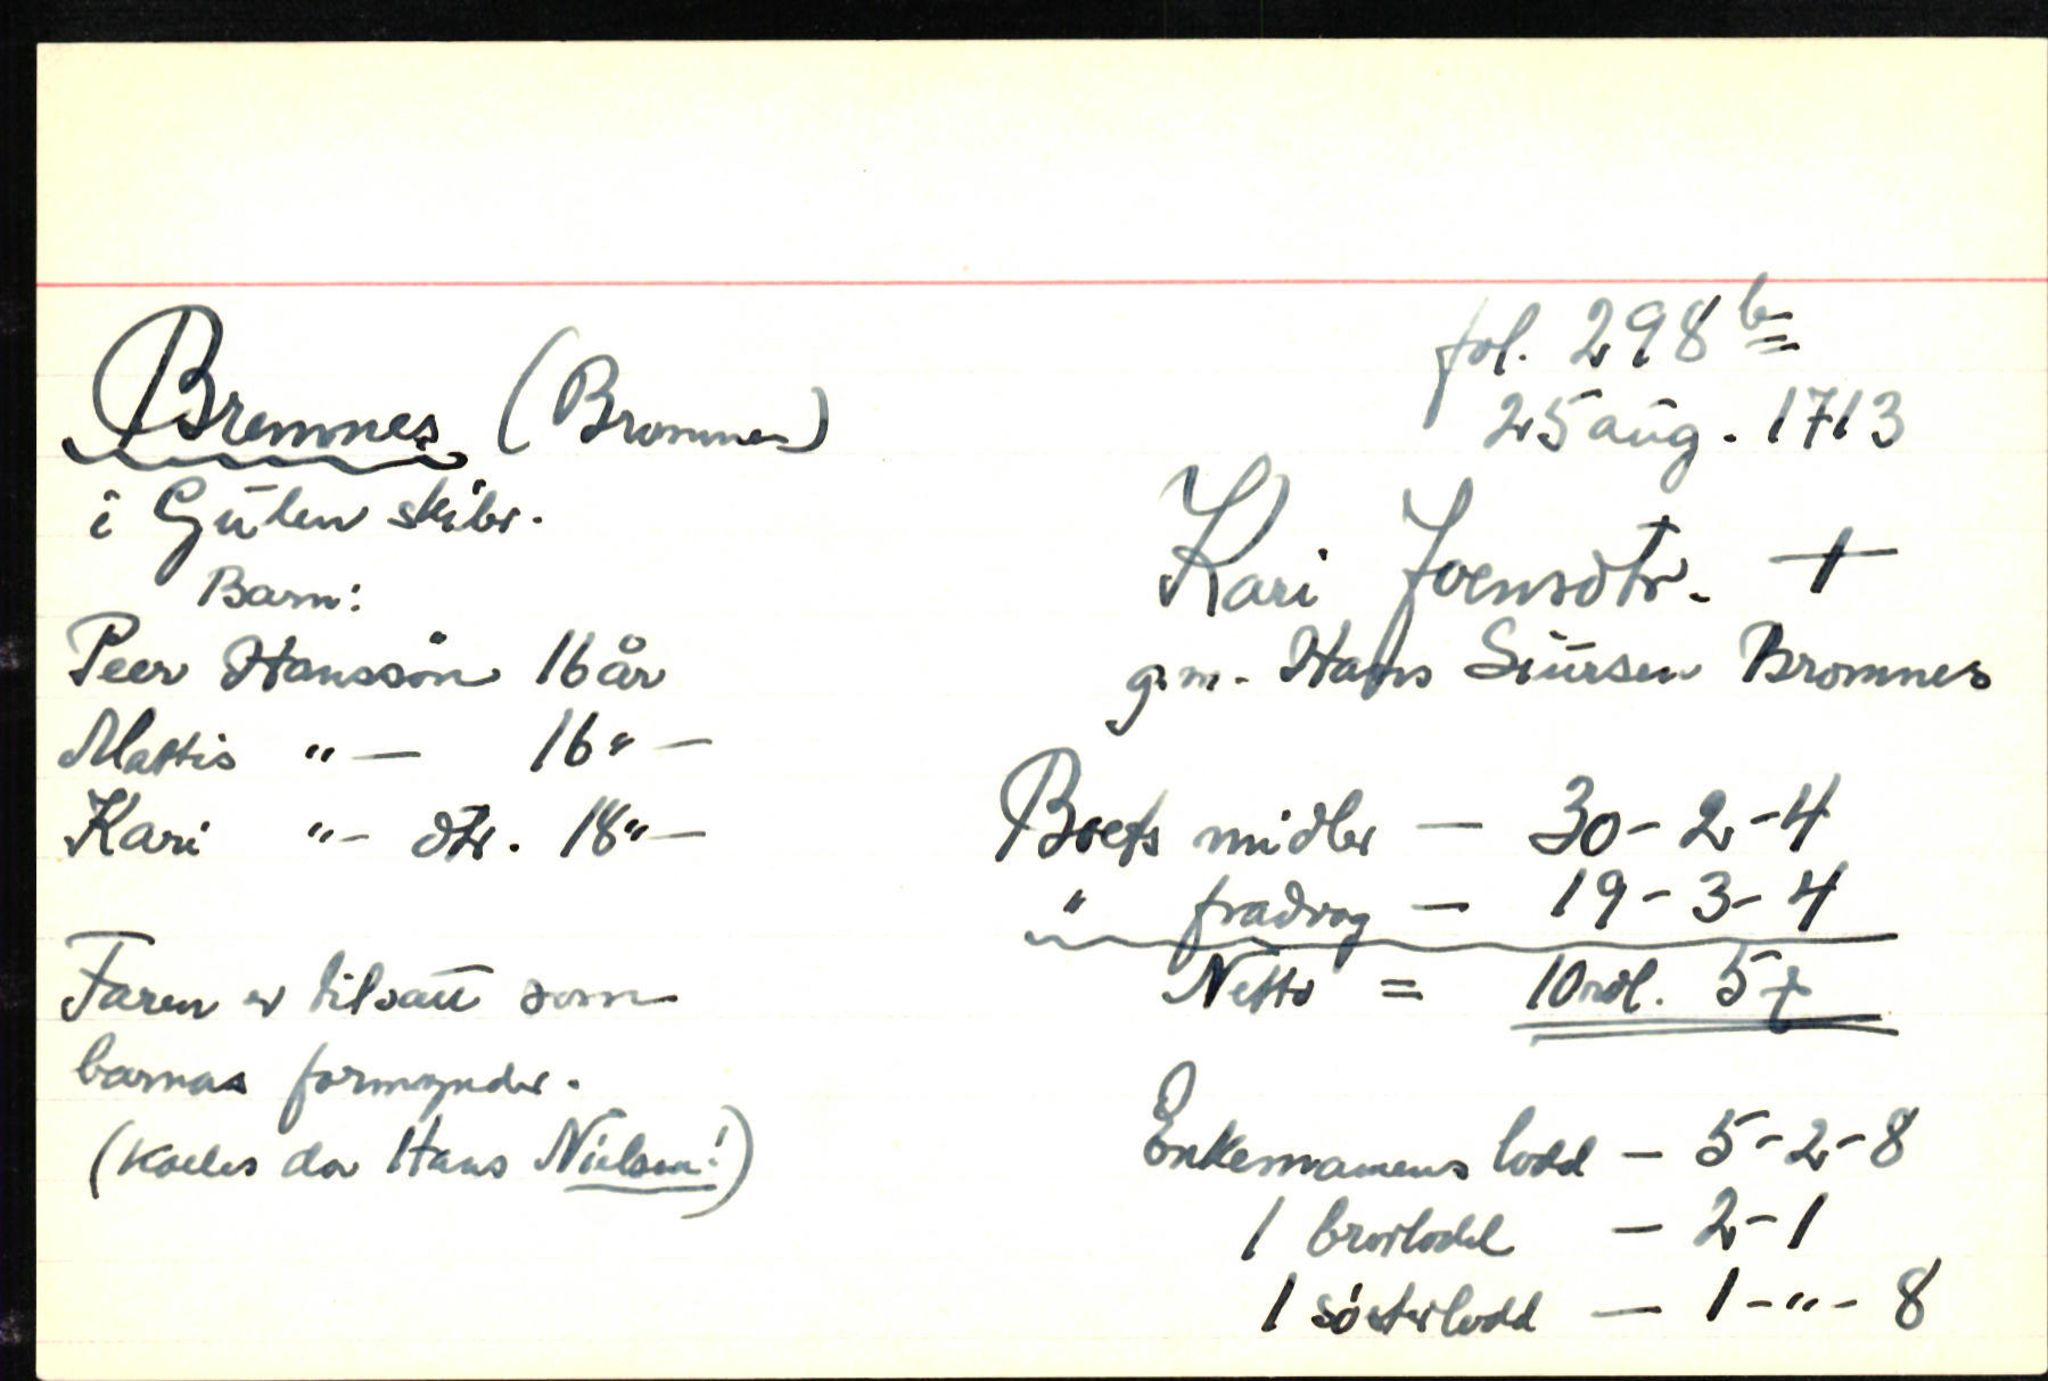 fol. 298 b
25 aug. 1713
Bremnes (Bromnes)
i Gulen skibr.
Barn:
Peer Hanssön 16 år
Mattis "— 16 "—
Kari "— dtr. 18 "—
Faren er tilsatt som
barnas formynder.
(Kalles da Hans Nielsen!)
Kari Joensdtr. +
g.m. Hans Siursen Bromnes
Boets midler — 30-2-4
" fradrag — 19-3-4
Netto = 10 rdl. 5
Enkemannens lodd — 5-2-8
1 brorlodd — 2-1
1 søsterlodd — 1-"-8